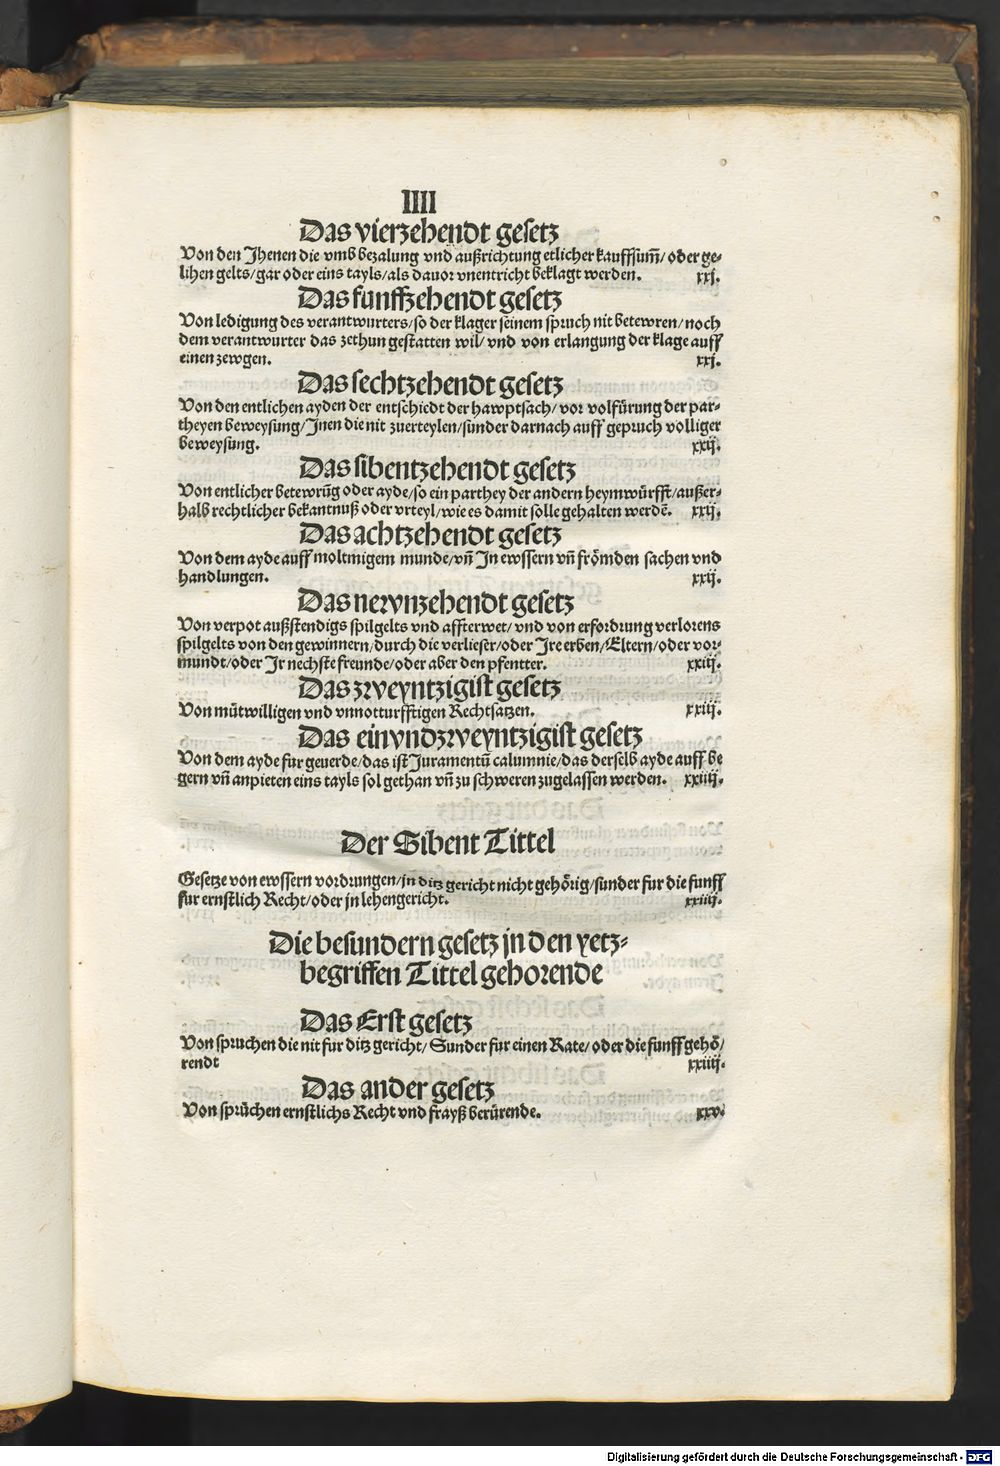 IIII
Das vierzehendt gesetz
Von den Jhenen die vmb bezalung vnd außrichtung etlicher kauffsum̄/ oder ge-
lihen gelts/ gar oder eins tayls/ als dauor vnentricht beklagt werden. xxj.
Das funffzehendt gesetz
Von ledigung des verantwurters/ so der klager seinem spruch nit betewren/ noch
dem verantwurter das zethun gestatten wil/ vnd von erlangung der klage auff
einen zewgen. xxj.
Das sechtzehendt gesetz
Von den entlichen ayden der entschiedt der hawptsach/ vor volfürung der par-
theyen beweysung/ Jnen die nit zuerteylen/ sunder darnach auff gepruch volliger
beweysung. xxij.
Das sibentzehendt gesetz
Von entlicher betewrūg oder ayde/ so ein parthey der andern heymwürfft/ außer-
halb rechtlicher bekantnuß oder vrteyl/ wie es damit solle gehalten werdē. xxij.
Das achtzehendt gesetz
Von dem ayde auff moltmigem munde/ vn̄ Jn ewssern vn̄ frömden sachen vnd
handlungen. xxij.
Das newnzehendt gesetz
Von verpot außstendigs spilgelts vnd affterwet/ vnd von erfordrung verlorens
spilgelts von den gewinnern/ durch die verlieser/ oder Jre erben/ Eltern/ oder vor-
mundt/ oder Jr nechste freunde/ oder aber den pfentter. xxiij.
Das zweyntzigist gesetz
Von mütwilligen vnd vnnotturfftigen Rechtsatzen. xxiij.
Das einvndzweyntzigist gesetz
Von dem ayde fur geuerde/ das ist Juramentū calumnie/ das derselb ayde auff be
gern vn̄ anpieten eins tayls sol gethan vn̄ zu schweren zugelassen werden. xxiiij.
Der Sibent Tittel
Gesetze von ewssern vordrungen/ in ditz gericht nicht gehörig/ sunder fur die funff
fur ernstlich Recht/ oder jn lehengericht. xxiiij.
Die besundern gesetz jn den yetz-
begriffen Tittel gehorende
Das Erst gesetz
Von spruchen die nit fur ditz gericht/ Sunder fur einen Rate/ oder die funff gehö/
rendt xxiiij.
Das ander gesetz
Von sprüchen ernstlichs Recht vnd frayß berürende. xxv.
Digitalisierung gefördert durch die Deutsche Forschungsgemeinschaft - DFG